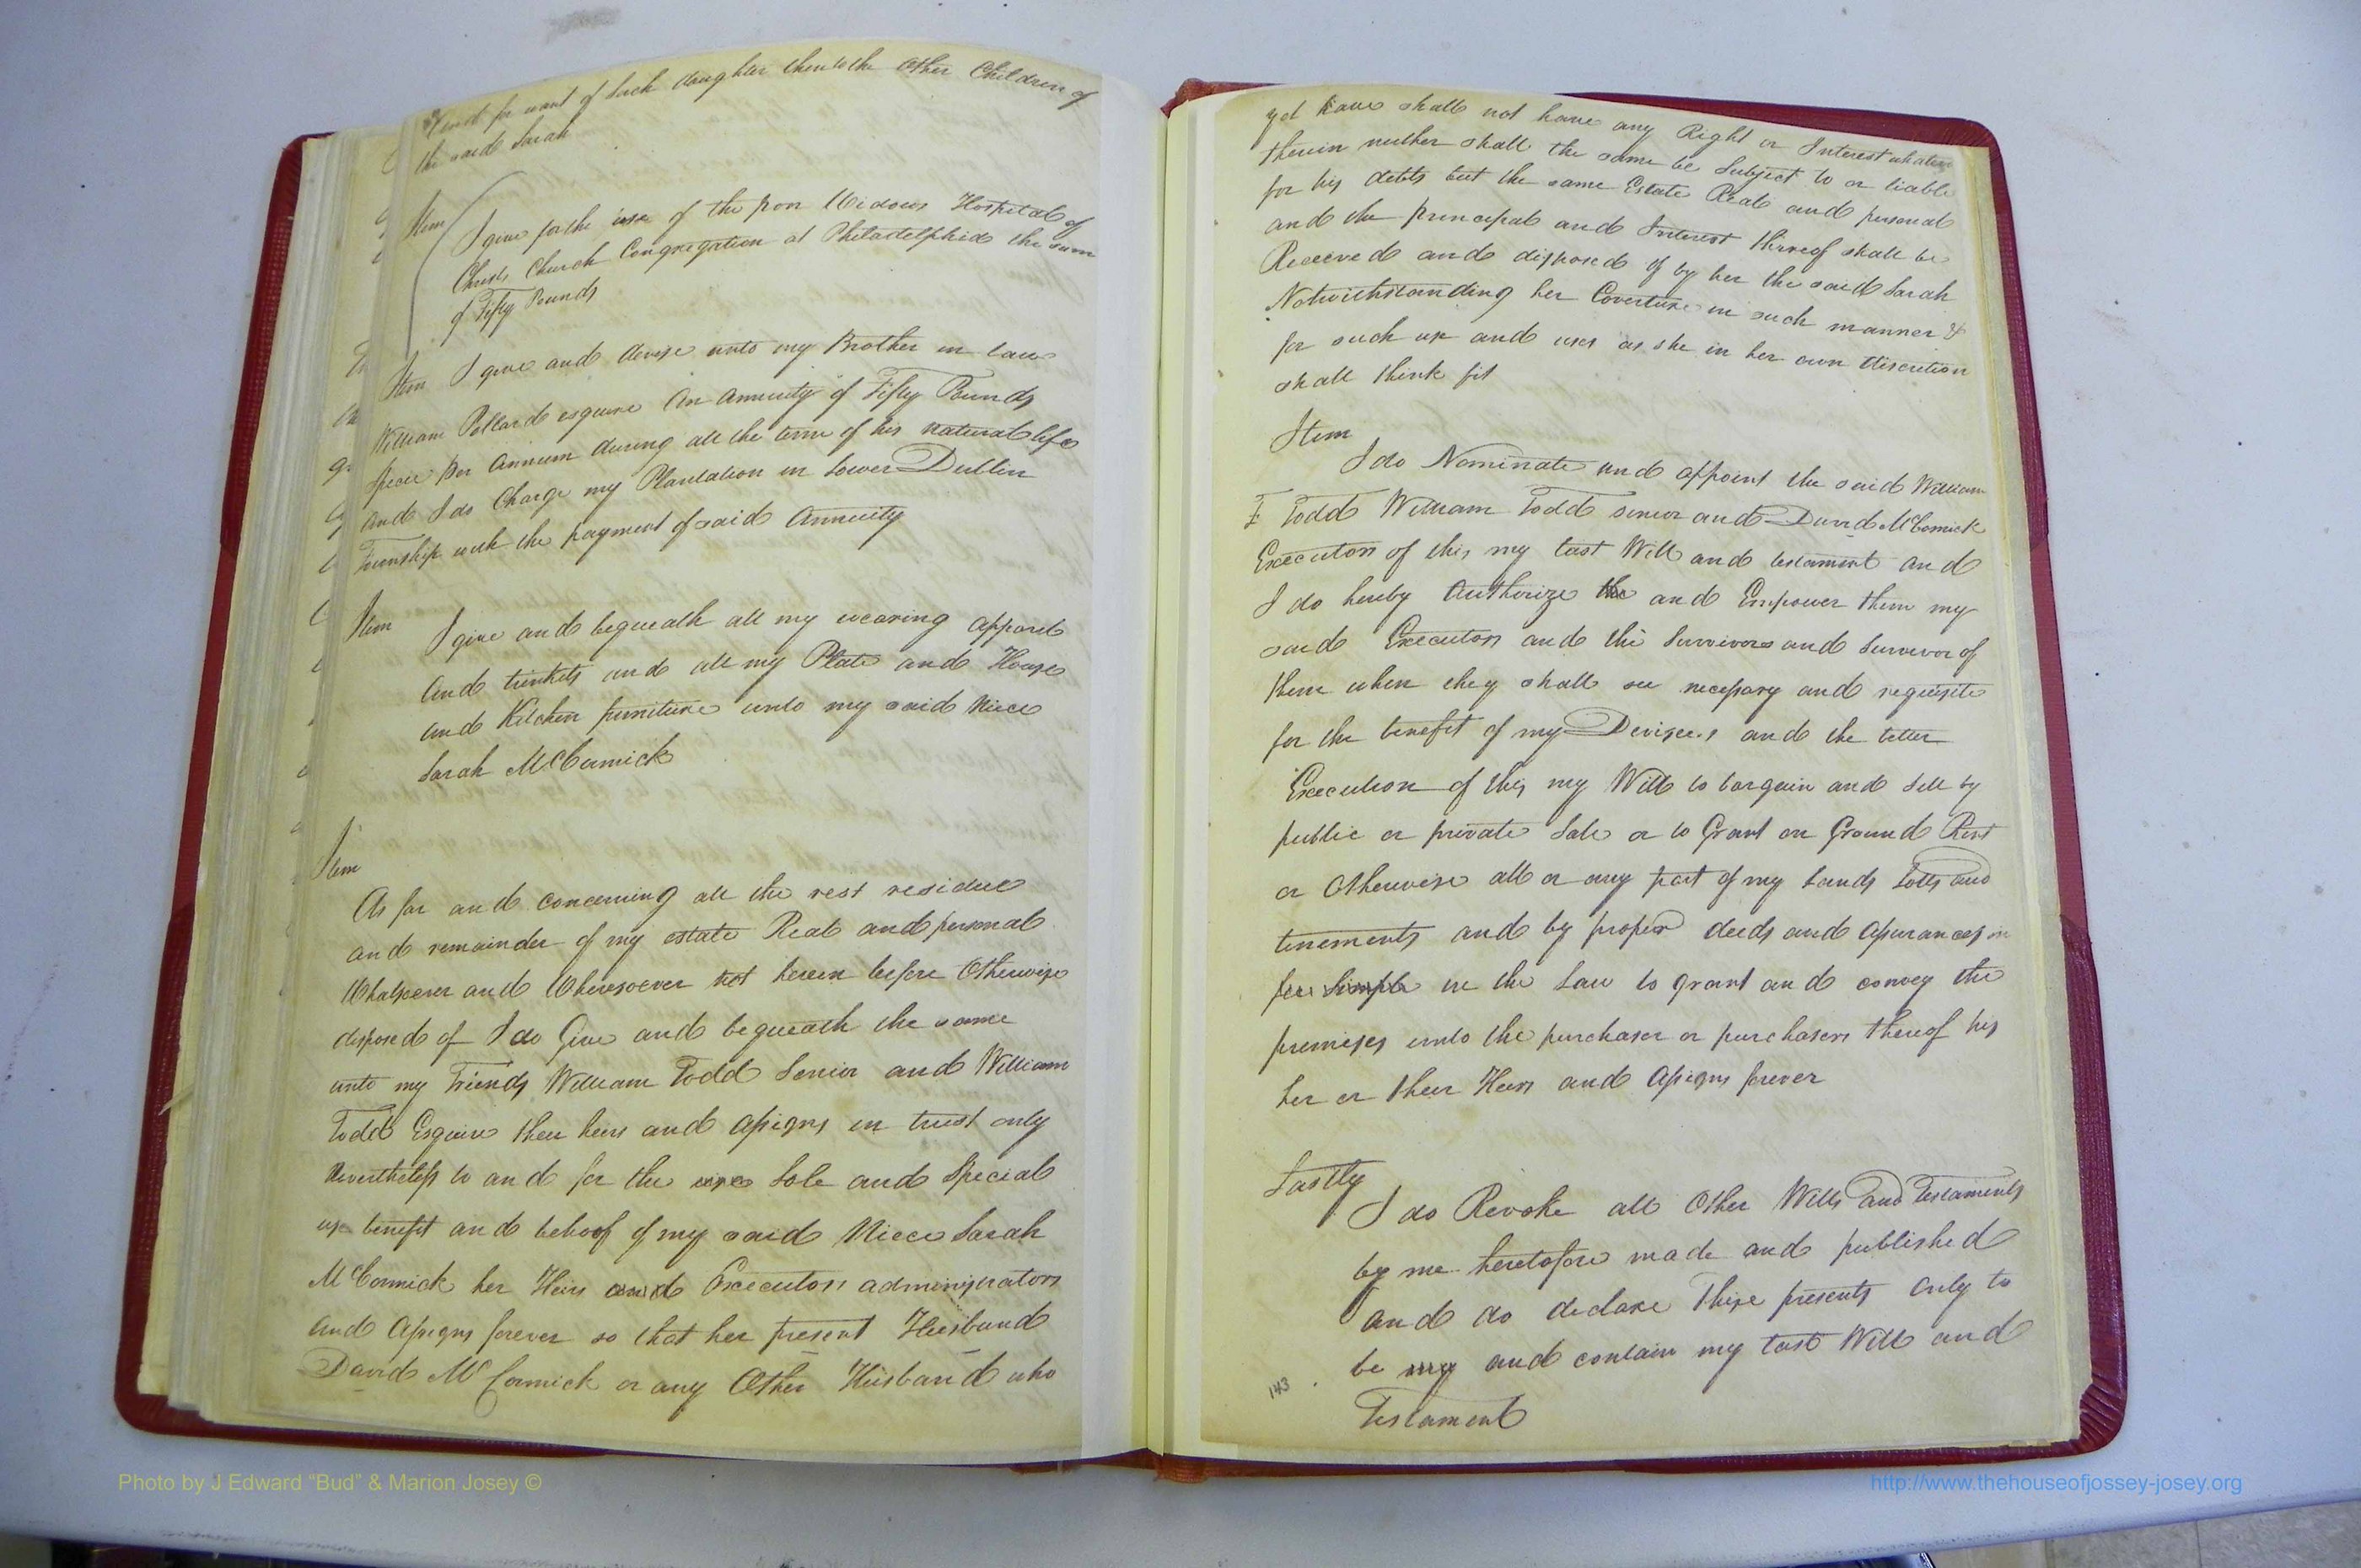 And for want of Such daughter then to the other Children of
the said Sarah
Item
I give for the use of the poor Widows Hospital of
Christ Church Congregation at Philadelphia the sum
of Fifty Pounds
Item I give and devise unto my Brother in law
William Pollard esquire An Annuity of Fifty Pounds
specie per Annum during all the term of his natural life
And I do Charge my Plantation in Lower Dublin
Township with the payment of said Annuity
Item I give and bequeath all my wearing apparel
And trinkets and all my Plate and House
and Kitchen furniture unto my said Niece
Sarah McCormick
Item
As for and concerning all the rest residue
and remainder of my estate Real and personal
Whatsoever and Wheresoever not herein before Otherwise
disposed of I do Give and bequeath the same
unto my Friends William Todd Senior and William
Todd Esquire their heirs and Assigns in trust only
Nevertheless to and for the Sole and Special
use benefit and behoof of my said Niece Sarah
McCormick her Heirs Executors administrators
And Assigns forever so that her present Husband
David McCormick or any Other Husband who
yet have shall not have any Right or Interest whatever
therein neither shall the same be Subject to or liable
for his debts but the same Estate Real and personal
and the principal and Interest thereof shall be
Received and disposed of by her the said Sarah
Notwithstanding her Coverture in such manner &
for such use and uses as she in her own discretion
shall think fit
Item
I do Nominate and appoint the said William
F Todd William Todd senior and David McCormick
Executors of this my last Will and testament and
I do hereby Authorize the and Empower them my
said Executors and the Survivors and Survivor of
them when they shall see necessary and requisite
for the benefit of my Devisees and the better
Execution of this my Will to bargain and Sell by
public or private Sale or to Grant on Ground Rent
or Otherwise all or any part of my Lands Lotts and
tenements and by proper deeds and Assurances in
fee Simple in the Law to grant and convey the
premises unto the purchaser or purchasers thereof his
her or their Heirs and Assigns forever
Lastly
I do Revoke all Other Wills and Testaments
by me heretofore made and published
and do declare These presents only to
be my and contain my last Will and
Testament
143
Photo by J Edward “Bud” & Marion Josey ©
http://www.thehouseofjossey-josey.org